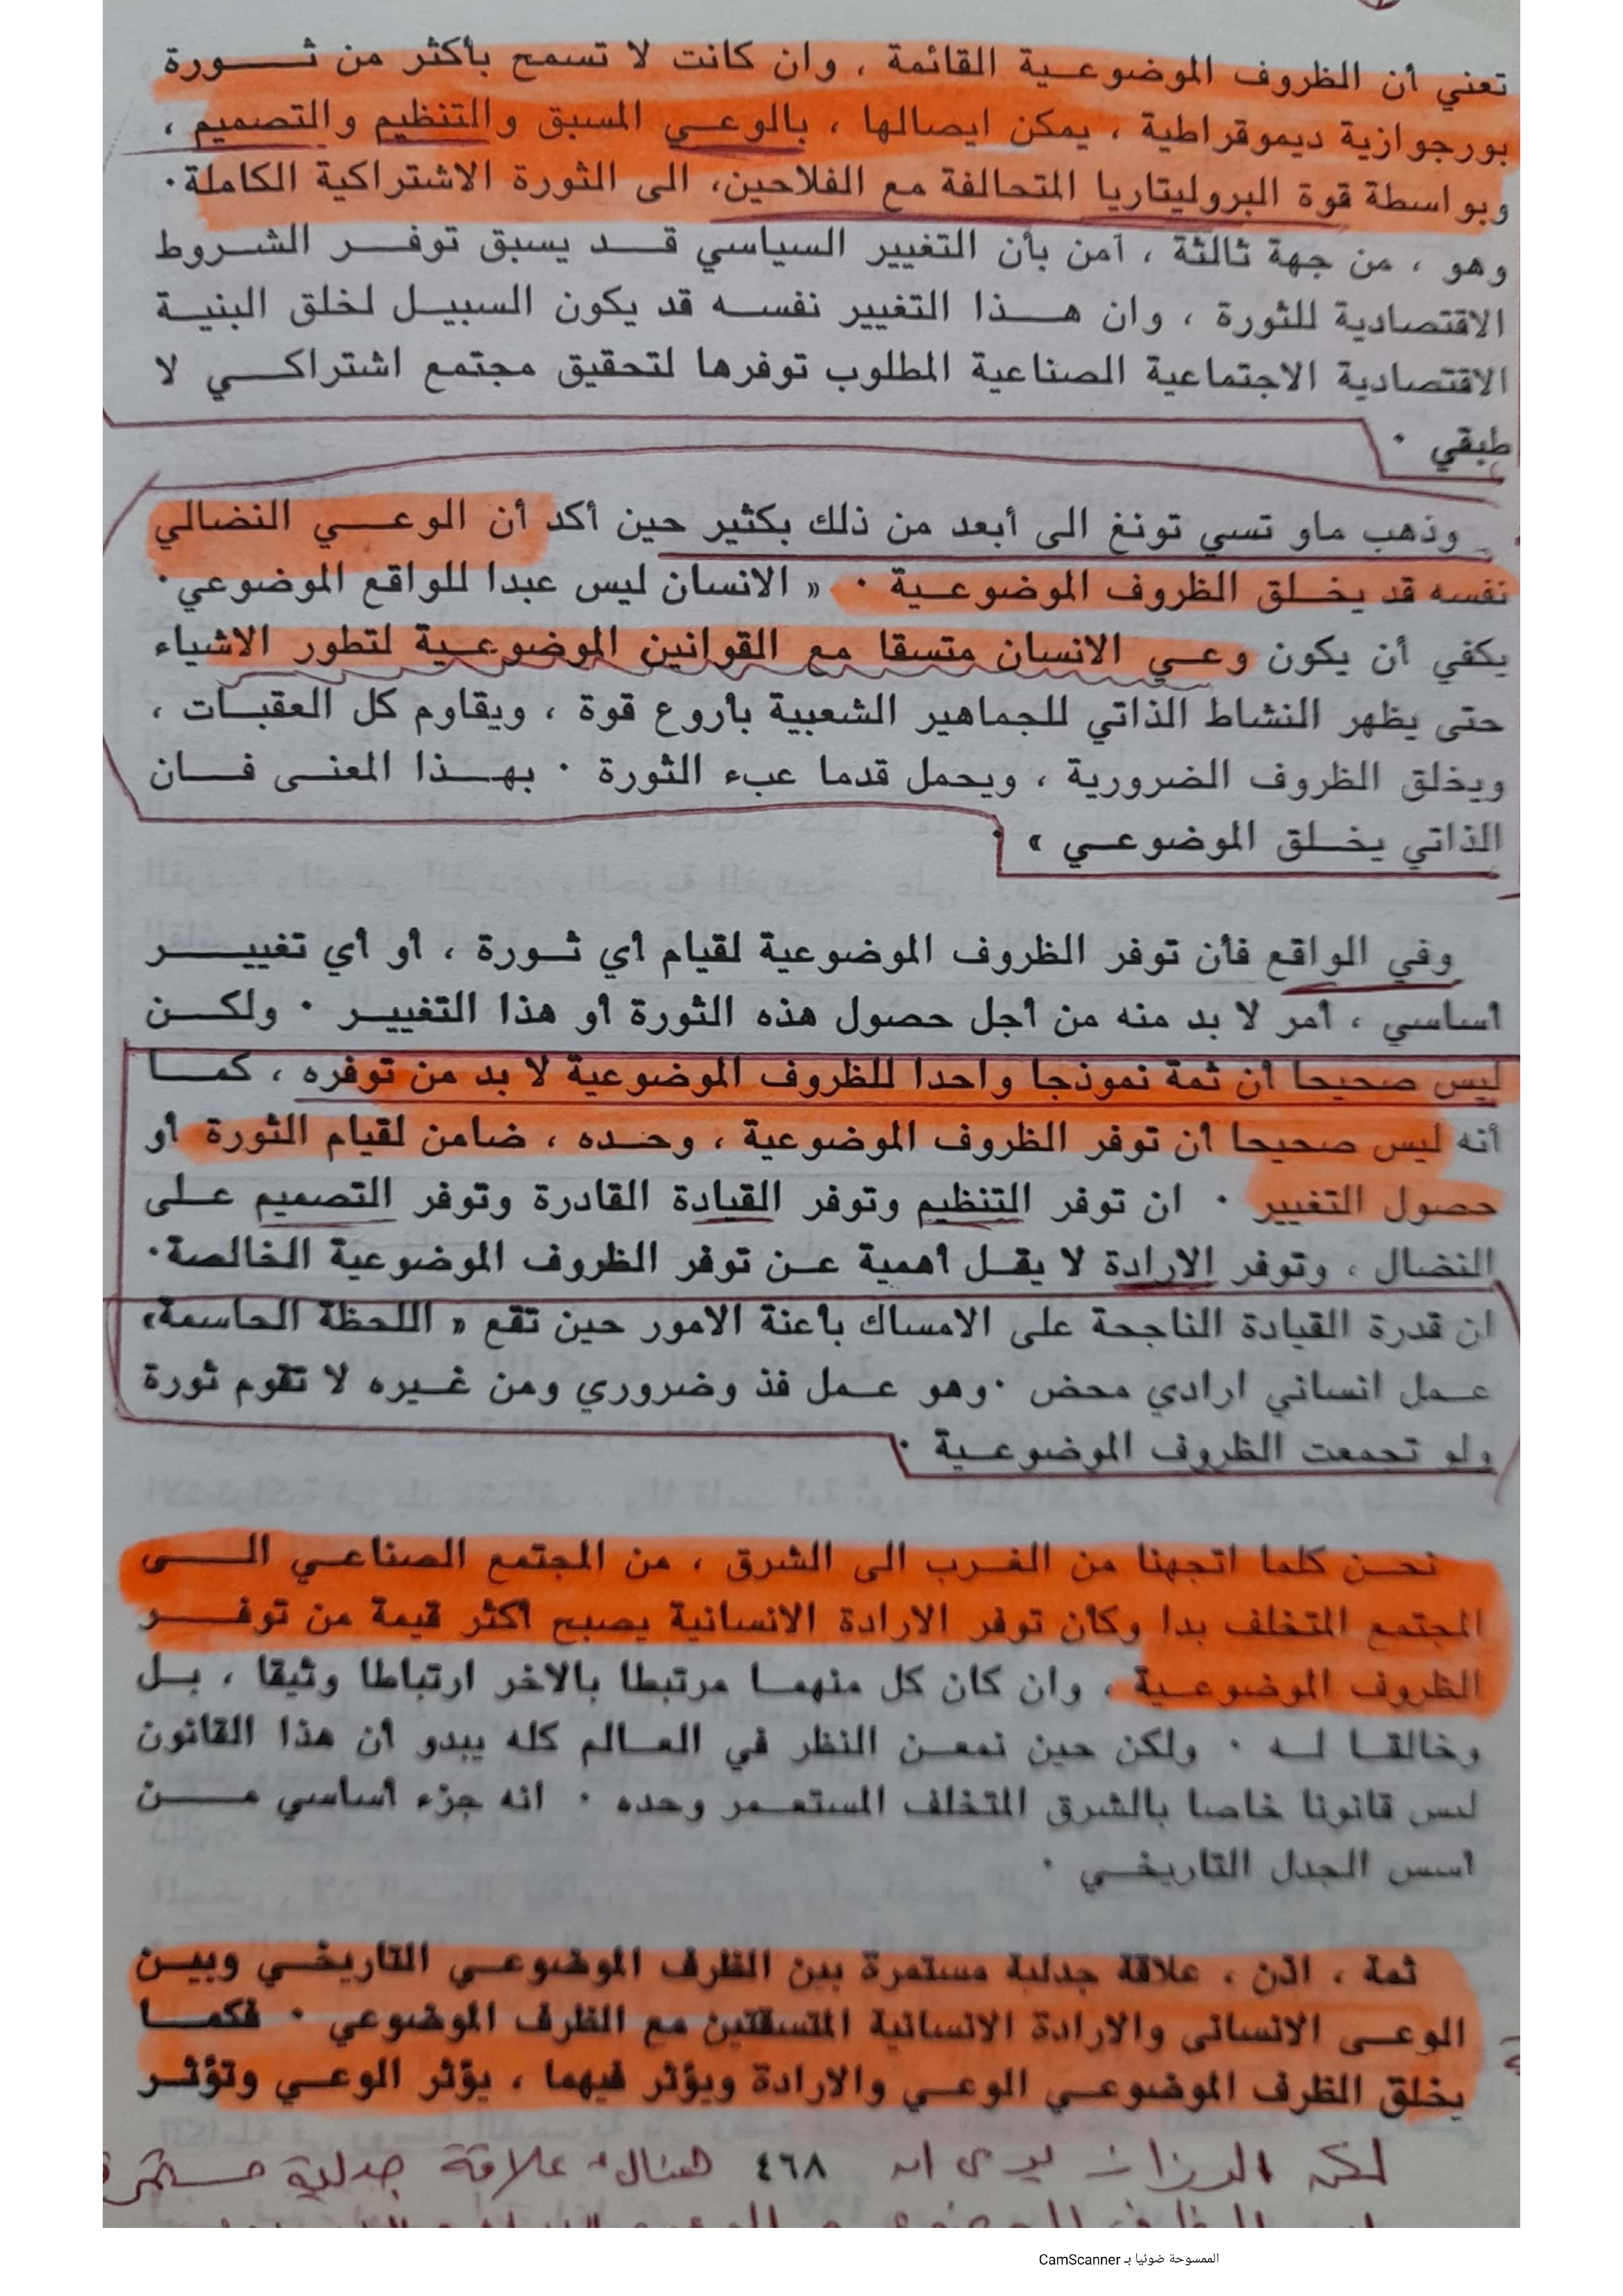 تعني أن الظروف الموضوعية القائمة ، وان كانت لا تسمح بأكثر من ثورة
بورجوازية ديموقراطية ، يمكن ايصالها ، بالوعي المسبق والتنظيم والتصميم ،
وبواسطة قوة البروليتاريا المتحالفة مع الفلاحين، الى الثورة الاشتراكية الكاملة.
وهو ، من جهة ثالثة ، آمن بأن التغيير السياسي قد يسبق توفر الشروط
الاقتصادية للثورة ، وان هذا التغيير نفسه قد يكون السبيل لخلق البنية
الاقتصادية الاجتماعية الصناعية المطلوب توفرها لتحقيق مجتمع اشتراكي لا
طبقي .
وذهب ماو تسي تونغ الى أبعد من ذلك بكثير حين أكد أن الوعي النضالي
نفسه قد يخلق الظروف الموضوعية . « الانسان ليس عبدا للواقع الموضوعي.
يكفي أن يكون وعي الانسان متسقا مع القوانين الموضوعية لتطور الاشياء
حتى يظهر النشاط الذاتي للجماهير الشعبية بأروع قوة ، ويقاوم كل العقبات ،
ويخلق الظروف الضرورية ، ويحمل قدما عبء الثورة . بهذا المعنى فان
الذاتي يخلق الموضوعي »
وفي الواقع فأن توفر الظروف الموضوعية لقيام أي ثورة ، أو أي تغيير
أساسي ، أمر لا بد منه من أجل حصول هذه الثورة أو هذا التغيير . ولكن
ليس صحيحا أن ثمة نموذجا واحدا للظروف الموضوعية لا بد من توفره ، كما
أنه ليس صحيحا أن توفر الظروف الموضوعية ، وحده ، ضامن لقيام الثورة أو
حصول التغيير . ان توفر التنظيم وتوفر القيادة القادرة وتوفر التصميم على
النضال ، وتوفر الارادة لا يقل أهمية عن توفر الظروف الموضوعية الخالصة.
ان قدرة القيادة الناجحة على الامساك بأعنة الامور حين تقع « اللحظة الحاسمة»
عمل انساني ارادي محض .وهو عمل فذ وضروري ومن غيره لا تقوم ثورة
ولو تجمعت الظروف الموضوعية .
نحن كلما اتجهنا من الغرب الى الشرق ، من المجتمع الصناعي الى
المجتمع المتخلف بدا وكأن توفر الارادة الانسانية يصبح أكثر قيمة من توفر
الظروف الموضوعية ، وان كان كل منهما مرتبطا بالاخر ارتباطا وثيقا ، بل
وخالقا له . ولكن حين نمعن النظر في العالم كله يبدو أن هذا القانون
ليس قانونا خاصا بالشرق المتخلف المستعمر وحده . انه جزء أساسي من
أسس الجدل التاريخي .
ثمة ، اذن ، علاقة جدلية مستمرة بين الظرف الموضوعي التاريخي وبين
الوعي الانساني والارادة الانسانية المتسقتين مع الظرف الموضوعي . فكما
يخلق الظرف الموضوعي الوعي والارادة ويؤثر فيهما ، يؤثر الوعي وتؤثر
لكن الرزاز يرى ان ٤٦٨ هناك علاقة جدلية مستمرة
الممسوحة ضوئيا بـ CamScanner